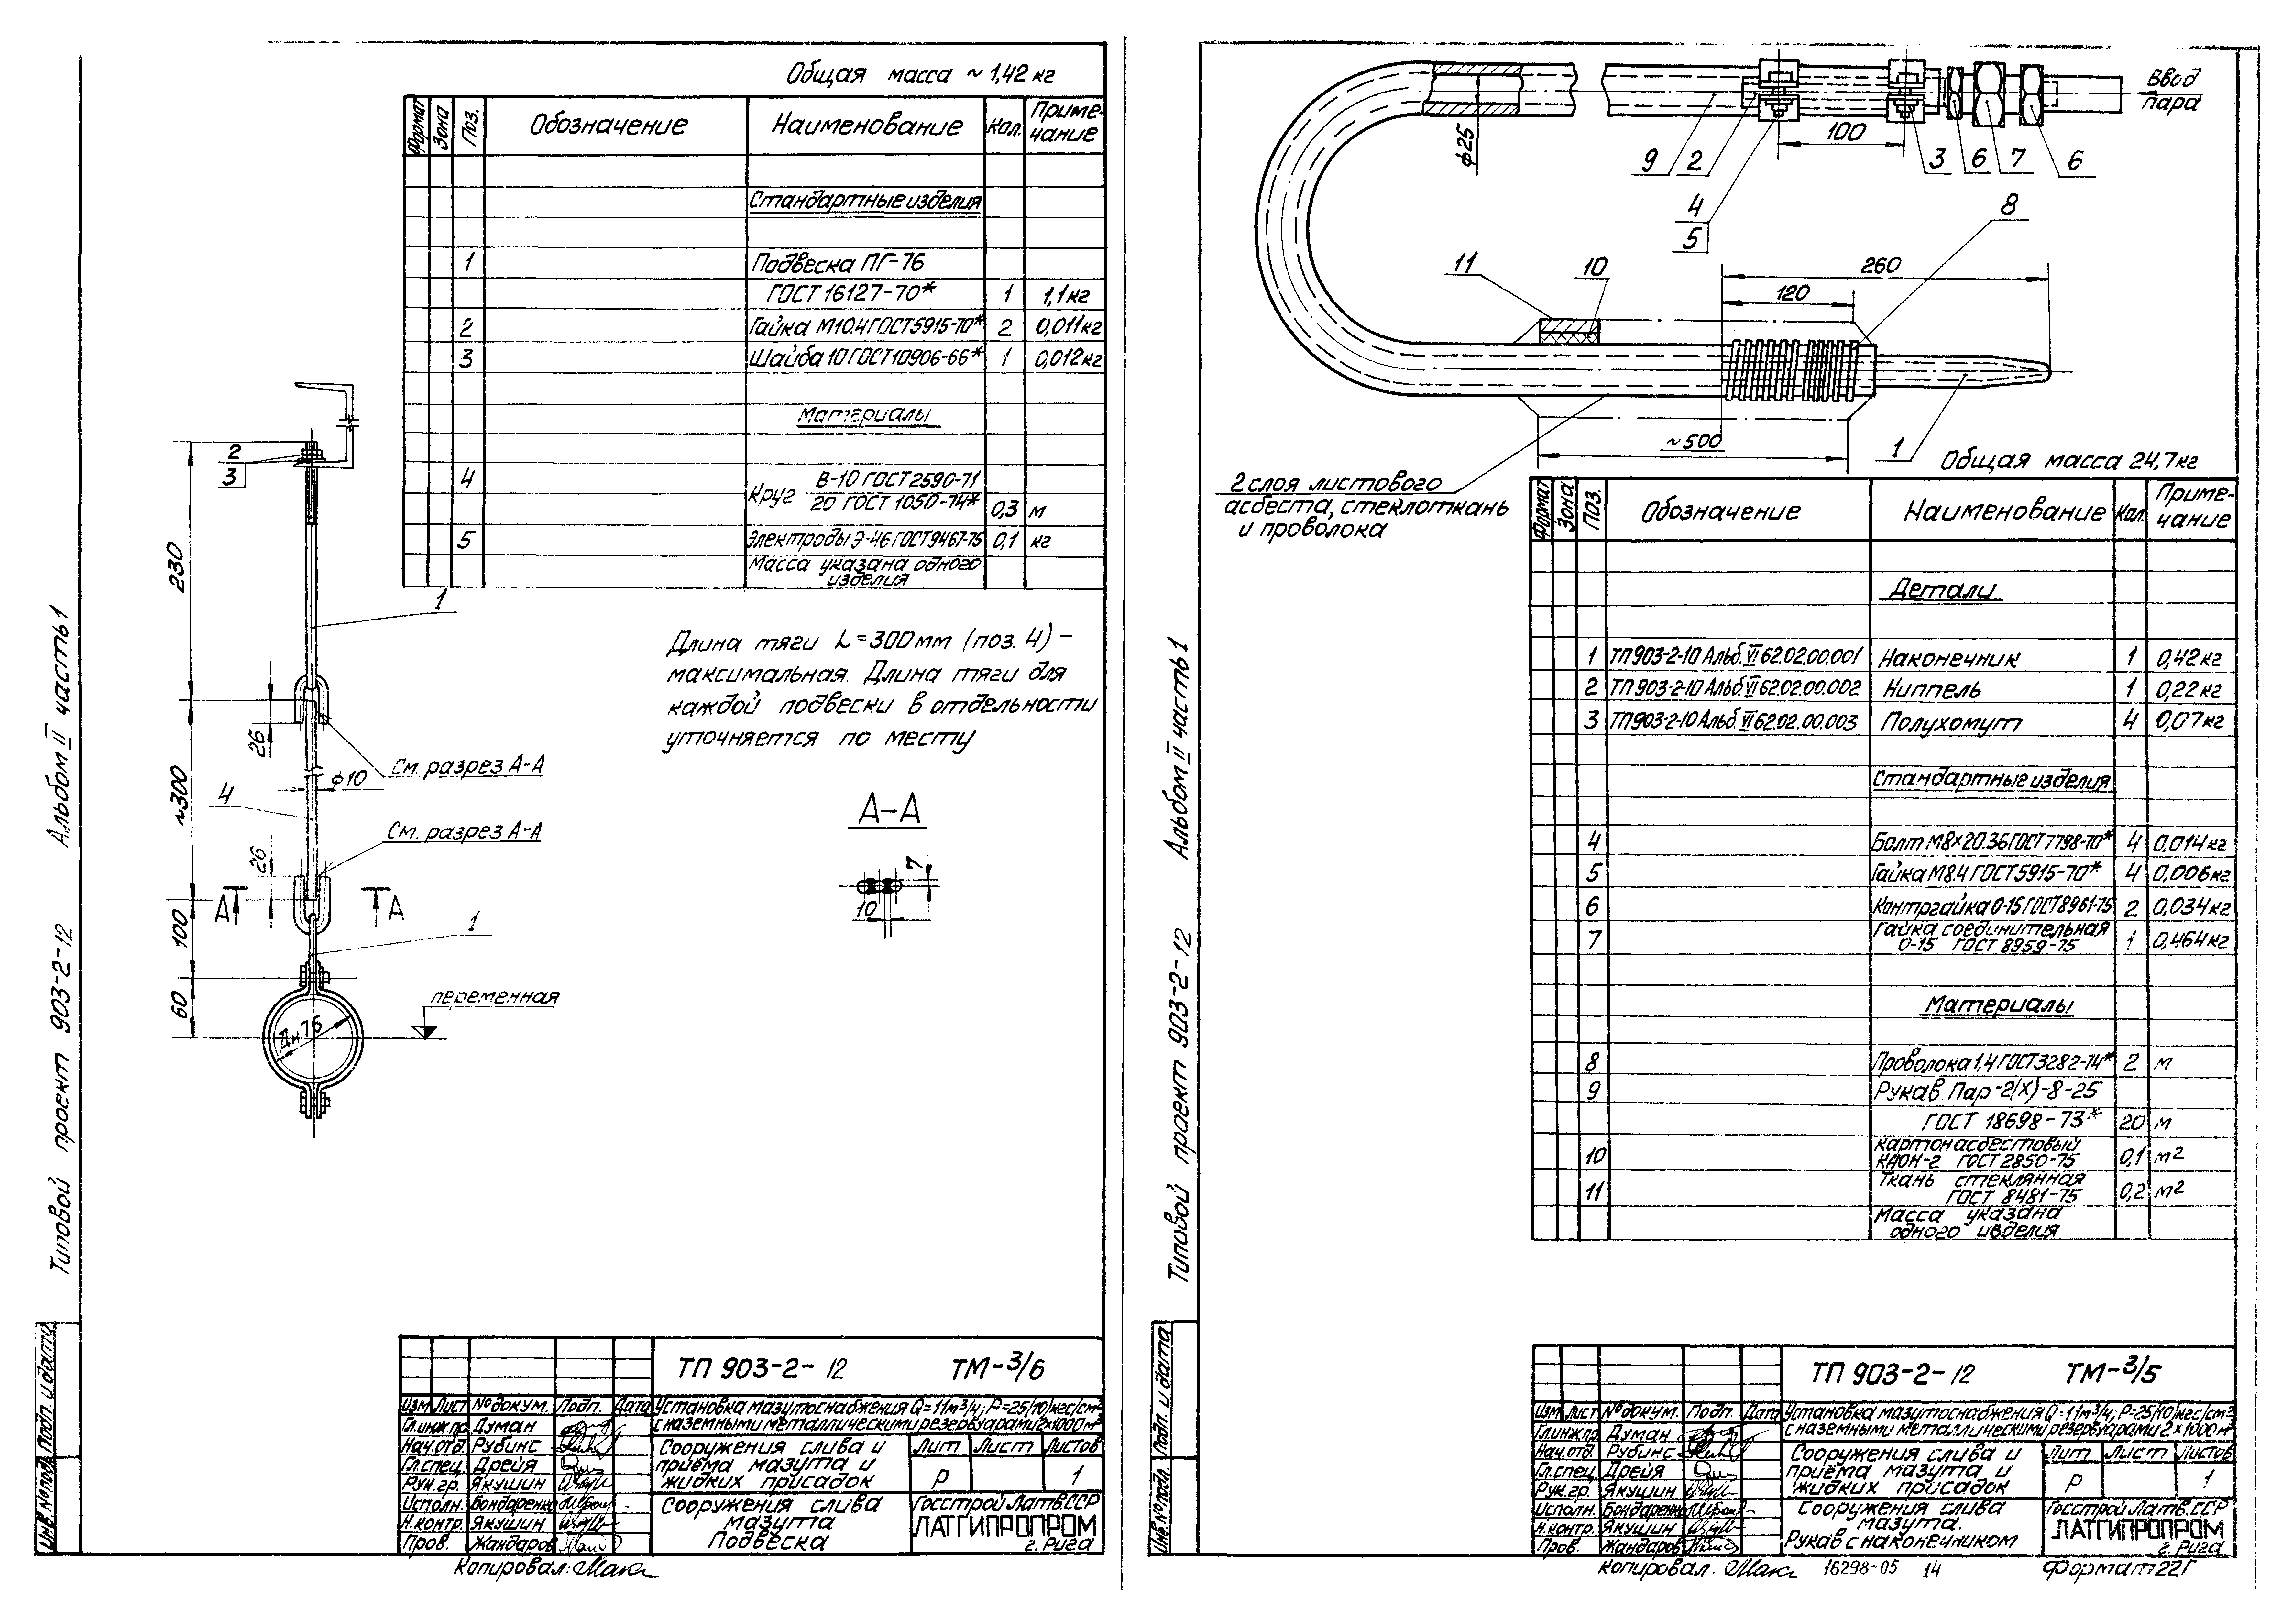 Общая масса ~ 1,42 кг
Формат Зона Поз. Обозначение Наименование Кол. Приме-
чание
Стандартные изделия
1 Подвеска ПГ-76
ГОСТ 16127-70* 1 1,1 кг
2 Гайка М10.4 ГОСТ 5915-70* 2 0,011 кг
3 Шайба 10 ГОСТ 10906-66* 1 0,012 кг
Материалы
4 Круг В-10 ГОСТ 2590-71
20 ГОСТ 1050-74* 0,3 м
5 Электроды Э-46 ГОСТ 9467-75 0,1 кг
Масса указана одного
изделия
2
3
230
1
26
См. разрез А-А
ф10
~300
4
См. разрез А-А
26
А А
100
1
60
переменная
Дн 76
Длина тяги L=300мм (поз. 4) -
максимальная. Длина тяги для
каждой подвески в отдельности
уточняется по месту
А-А
7
10
Типовой проект 903-2-12 Альбом II часть 1
Инв. № подл. Подп. и дата
ТП 903-2-12 ТМ-3/6
Изм Лист № докум. Подп. Дата
Установка мазутоснабжения Q=11м³/ч; Р=25(10)кгс/см²
с наземными металлическими резервуарами 2х1000м³
Гл.инж.пр. Думан
Нач.отд. Рубинс
Гл.спец. Дрейя
Рук.гр. Якушин
Исполн. Бондаренко
Н.контр. Якушин
Пров. Жандаров
Сооружения слива и
приёма мазута и
жидких присадок
Лит Лист Листов
Р 1
Сооружения слива
мазута
Подвеска
Госстрой Латв.ССР
ЛАТГИПРОПРОМ
г. Рига
Копировал:
Ввод
пара
ф25
100
9 2 3 6 7 6
4
5
8
11 10
260
120
~500
1
2 слоя листового
асбеста, стеклоткань
и проволока
Общая масса 24,7 кг
Формат Зона Поз. Обозначение Наименование Кол. Приме-
чание
Детали
1 ТП 903-2-10 Альб. VI 62.02.00.001 Наконечник 1 0,42 кг
2 ТП 903-2-10 Альб. VI 62.02.00.002 Ниппель 1 0,22 кг
3 ТП 903-2-10 Альб. VI 62.02.00.003 Полухомут 4 0,07 кг
Стандартные изделия
4 Болт М8х20.36 ГОСТ 7798-70* 4 0,014 кг
5 Гайка М8.4 ГОСТ 5915-70* 4 0,006 кг
6 Контргайка 0-15 ГОСТ 8961-75 2 0,034 кг
7 Гайка соединительная
0-15 ГОСТ 8959-75 1 0,464 кг
Материалы
8 Проволока 1,4 ГОСТ 3282-74* 2 м
9 Рукав Пар-2(Х)-8-25
ГОСТ 18698-73* 20 м
10 Картон асбестовый
КАОН-2 ГОСТ 2850-75 0,1 м2
11 Ткань стеклянная
ГОСТ 8481-75 0,2 м2
Масса указана
одного изделия
Типовой проект 903-2-12 Альбом II часть 1
Инв. № подл. Подп. и дата
ТП 903-2-12 ТМ-3/5
Изм Лист № докум. Подп. Дата
Установка мазутоснабжения Q=11м³/ч; Р=25(10)кгс/см²
с наземными металлическими резервуарами 2х1000м³
Гл.инж.пр. Думан
Нач.отд. Рубинс
Гл.спец. Дрейя
Рук.гр. Якушин
Исполн. Бондаренко
Н.контр. Якушин
Пров. Жандаров
Сооружения слива и
приёма мазута и
жидких присадок
Лит Лист Листов
Р 1
Сооружения слива
мазута.
Рукав с наконечником
Госстрой Латв.ССР
ЛАТГИПРОПРОМ
г. Рига
Копировал: 16298-05 14 Формат 22Г